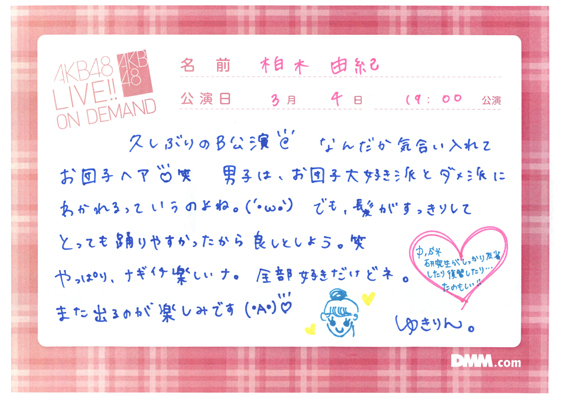 AKB48
LIVE!!
ON DEMAND
AKB
48
名前 柏木 由紀
公演日 3月 4日 19:00 公演
久しぶりのB公演 なんだか気合い入れて
お団子ヘア 笑 男子は、お団子大好き派とダメ派に
わかれるっていうのよね。(´•ω•`) でも、髪がすっきりして
とっても踊りやすかったから良しとしよう。笑
やっぱり、ナギイチ楽しいナ。全部好きだけどネ。
また出るのが楽しみです (•A•)
研究生がしっかり
したり復習したり…
たのもしい!!
ゆきりん。
DMM.com